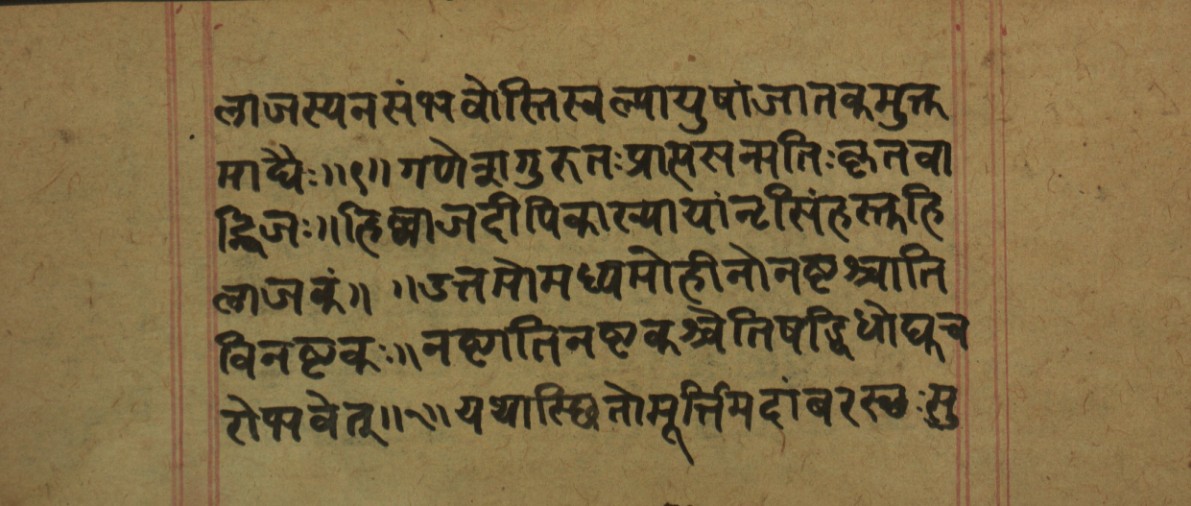 लाजस्यनसंभवोस्तिस्वल्पायुषांजातकमुक्त
माद्यैः॥९॥गणेशगुरुतःप्राप्तसन्मतिःकृतवा
द्विजः॥हिल्लाजदीपिकाख्यायांनृसिंहस्तुहि
लाजकं॥ ॥उत्तमोमध्यमोहीनोनष्टश्चाति
विनष्टकः॥नष्टातिनष्टकश्चैतिषड्विधोद्युच
रोभवेत्॥१॥यथास्थितोमूर्त्तिमदांबरस्थःसु